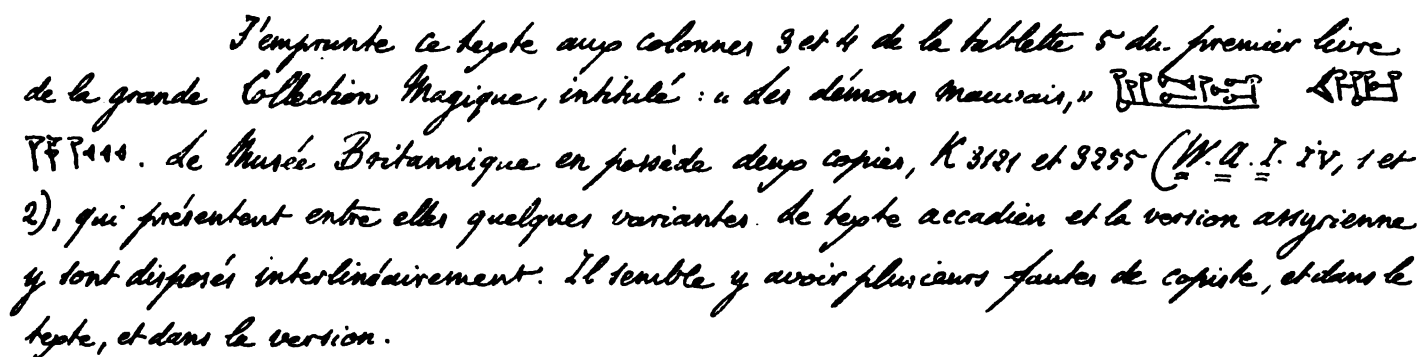 J'emprunte ce texte aux colonnes 3 et 4 de la tablette 5 du premier livre
de la grande Collection Magique, intitulé : « Les démons mauvais, »
. Le Musée Britannique en possède deux copies, K 3121 et 3255 (W. A. I. IV, 1 et
2), qui présentent entre elles quelques variantes. Le texte accadien et la version assyrienne
y sont disposés interlinéairement. Il semble y avoir plusieurs fautes de copiste, et dans le
texte, et dans la version.